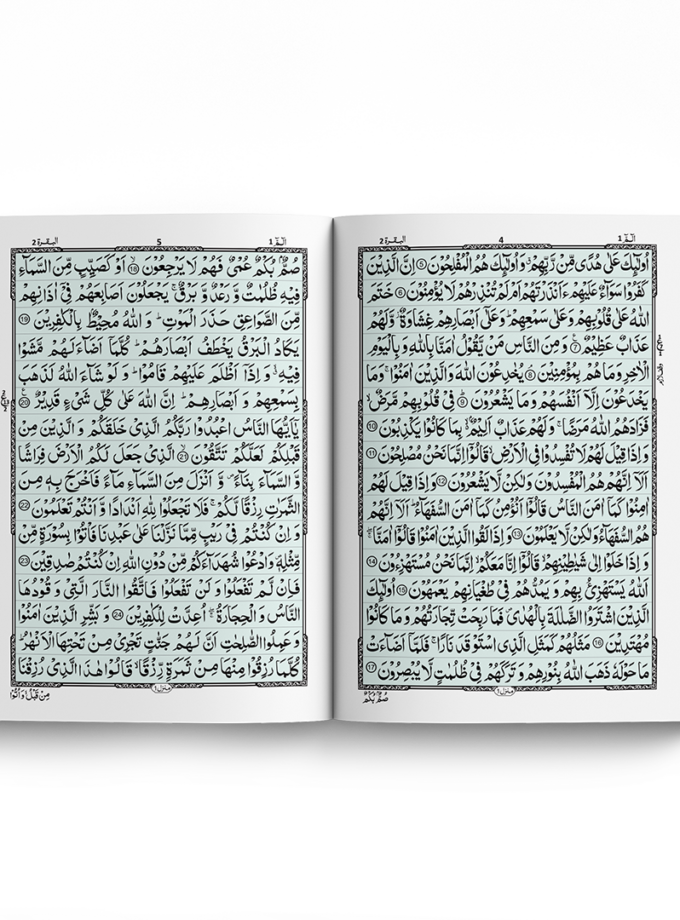 الٓمّٓ 1
4
البقرة 2
اُولٰٓئِكَ عَلٰى هُدًى مِّنْ رَّبِّهِمْ ۙ وَاُولٰٓئِكَ هُمُ الْمُفْلِحُوْنَ 5 اِنَّ الَّذِيْنَ
كَفَرُوْا سَوَآءٌ عَلَيْهِمْ ءَاَنْذَرْتَهُمْ اَمْ لَمْ تُنْذِرْهُمْ لَا يُؤْمِنُوْنَ 6 خَتَمَ
اللّٰهُ عَلٰى قُلُوْبِهِمْ وَعَلٰى سَمْعِهِمْ ؕ وَعَلٰٓى اَبْصَارِهِمْ غِشَاوَةٌ ؗ وَّلَهُمْ
عَذَابٌ عَظِيْمٌ 7 وَ مِنَ النَّاسِ مَنْ يَّقُوْلُ اٰمَنَّا بِاللّٰهِ وَ بِالْيَوْمِ
الْاٰخِرِ وَمَا هُمْ بِمُؤْمِنِيْنَ 8 يُخٰدِعُوْنَ اللّٰهَ وَالَّذِيْنَ اٰمَنُوْا ۚ وَمَا
يَخْدَعُوْنَ اِلَّاۤ اَنْفُسَهُمْ وَمَا يَشْعُرُوْنَ 9 فِيْ قُلُوْبِهِمْ مَّرَضٌ ۙ
فَزَادَهُمُ اللّٰهُ مَرَضًا ۚ وَلَهُمْ عَذَابٌ اَلِيْمٌۢ ۙ بِمَا كَانُوْا يَكْذِبُوْنَ 10
وَاِذَا قِيْلَ لَهُمْ لَا تُفْسِدُوْا فِي الْاَرْضِ ۙ قَالُوْۤا اِنَّمَا نَحْنُ مُصْلِحُوْنَ 11
اَلَاۤ اِنَّهُمْ هُمُ الْمُفْسِدُوْنَ وَلٰكِنْ لَّا يَشْعُرُوْنَ 12 وَاِذَا قِيْلَ لَهُمْ
اٰمِنُوْا كَمَاۤ اٰمَنَ النَّاسُ قَالُوْۤا اَنُؤْمِنُ كَمَاۤ اٰمَنَ السُّفَهَآءُ ؕ اَلَاۤ اِنَّهُمْ
هُمُ السُّفَهَآءُ وَلٰكِنْ لَّا يَعْلَمُوْنَ 13 وَاِذَا لَقُوا الَّذِيْنَ اٰمَنُوْا قَالُوْۤا اٰمَنَّا ۚۖ
وَ اِذَا خَلَوْا اِلٰى شَيٰطِيْنِهِمْ ۙ قَالُوْۤا اِنَّا مَعَكُمْ ۙ اِنَّمَا نَحْنُ مُسْتَهْزِءُوْنَ 14
اَللّٰهُ يَسْتَهْزِئُ بِهِمْ وَ يَمُدُّهُمْ فِيْ طُغْيَانِهِمْ يَعْمَهُوْنَ 15 اُولٰٓئِكَ
الَّذِيْنَ اشْتَرَوُا الضَّلٰلَةَ بِالْهُدٰى ۪ فَمَا رَبِحَتْ تِّجَارَتُهُمْ وَ مَا كَانُوْا
مُهْتَدِيْنَ 16 مَثَلُهُمْ كَمَثَلِ الَّذِى اسْتَوْقَدَ نَارًا ۚ فَلَمَّاۤ اَضَآءَتْ
مَا حَوْلَهٗ ذَهَبَ اللّٰهُ بِنُوْرِهِمْ وَ تَرَكَهُمْ فِيْ ظُلُمٰتٍ لَّا يُبْصِرُوْنَ 17
صُمٌّۢ بُكْمٌ
الٓمّٓ 1
5
البقرة 2
صُمٌّۢ بُكْمٌ عُمْيٌ فَهُمْ لَا يَرْجِعُوْنَ ۙ 18 اَوْ كَصَيِّبٍ مِّنَ السَّمَآءِ
فِيْهِ ظُلُمٰتٌ وَّ رَعْدٌ وَّ بَرْقٌ ۚ يَجْعَلُوْنَ اَصَابِعَهُمْ فِيْۤ اٰذَانِهِمْ
مِّنَ الصَّوَاعِقِ حَذَرَ الْمَوْتِ ؕ وَ اللّٰهُ مُحِيْطٌۢ بِالْكٰفِرِيْنَ 19
يَكَادُ الْبَرْقُ يَخْطَفُ اَبْصَارَهُمْ ؕ كُلَّمَاۤ اَضَآءَ لَهُمْ مَّشَوْا
فِيْهِ ۙ وَ اِذَاۤ اَظْلَمَ عَلَيْهِمْ قَامُوْا ؕ وَ لَوْ شَآءَ اللّٰهُ لَذَهَبَ
بِسَمْعِهِمْ وَ اَبْصَارِهِمْ ؕ اِنَّ اللّٰهَ عَلٰى كُلِّ شَيْءٍ قَدِيْرٌ 20
يٰۤاَيُّهَا النَّاسُ اعْبُدُوْا رَبَّكُمُ الَّذِيْ خَلَقَكُمْ وَ الَّذِيْنَ مِنْ
قَبْلِكُمْ لَعَلَّكُمْ تَتَّقُوْنَ ۙ 21 الَّذِيْ جَعَلَ لَكُمُ الْاَرْضَ فِرَاشًا
وَّ السَّمَآءَ بِنَآءً ۪ وَّ اَنْزَلَ مِنَ السَّمَآءِ مَآءً فَاَخْرَجَ بِهٖ مِنَ
الثَّمَرٰتِ رِزْقًا لَّكُمْ ۚ فَلَا تَجْعَلُوْا لِلّٰهِ اَنْدَادًا وَّ اَنْتُمْ تَعْلَمُوْنَ 22
وَ اِنْ كُنْتُمْ فِيْ رَيْبٍ مِّمَّا نَزَّلْنَا عَلٰى عَبْدِنَا فَاْتُوْا بِسُوْرَةٍ مِّنْ
مِّثْلِهٖ ۪ وَادْعُوْا شُهَدَآءَكُمْ مِّنْ دُوْنِ اللّٰهِ اِنْ كُنْتُمْ صٰدِقِيْنَ 23
فَاِنْ لَّمْ تَفْعَلُوْا وَ لَنْ تَفْعَلُوْا فَاتَّقُوا النَّارَ الَّتِيْ وَ قُوْدُهَا
النَّاسُ وَ الْحِجَارَةُ ۖۚ اُعِدَّتْ لِلْكٰفِرِيْنَ 24 وَ بَشِّرِ الَّذِيْنَ اٰمَنُوْا
وَ عَمِلُوا الصّٰلِحٰتِ اَنَّ لَهُمْ جَنّٰتٍ تَجْرِيْ مِنْ تَحْتِهَا الْاَنْهٰرُ ؕ
كُلَّمَا رُزِقُوْا مِنْهَا مِنْ ثَمَرَةٍ رِّزْقًا ۙ قَالُوْا هٰذَا الَّذِيْ رُزِقْنَا
مِنْ قَبْلُ وَ اُتُوْا